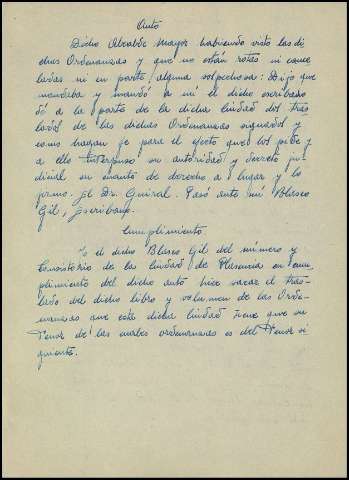 Auto
Dicho Alcalde Mayor habiendo visto las di
chas Ordenanzas y que no están rotas ni cance
ladas ni en parte alguna sospechosas: Dijo que
mandaba y mandó a mí el dicho escribano
dé a la parte de la dicha Ciudad dos tras
lados de las dichas Ordenanzas signados y
como hagan fe para el efecto que los pide y
a ello interpuso su autoridad y decreto ju-
dicial en cuanto de derecho a lugar y lo
firmó. El Dr. Guiral. Pasó ante mí Blasco
Gil, Escribano.
Cumplimiento
Yo el dicho Blasco Gil del número y
Consistorio de la Ciudad de Plasencia en cum
plimiento del dicho auto hice sacar el tras-
lado del dicho libro y volumen de las Orde-
nanzas que esta dicha Ciudad tiene que su
Tenor de las cuales ordenanzas es del Tenor si
guiente.